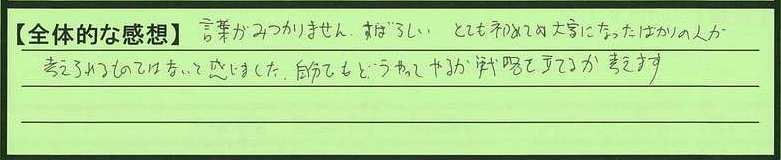 【全体的な感想】言葉がみつかりません。すばらしい とても初めて大家になったばかりの人が
考えられるものではないと感じました。自分でもどうやってやるか戦略を立てるか考えます